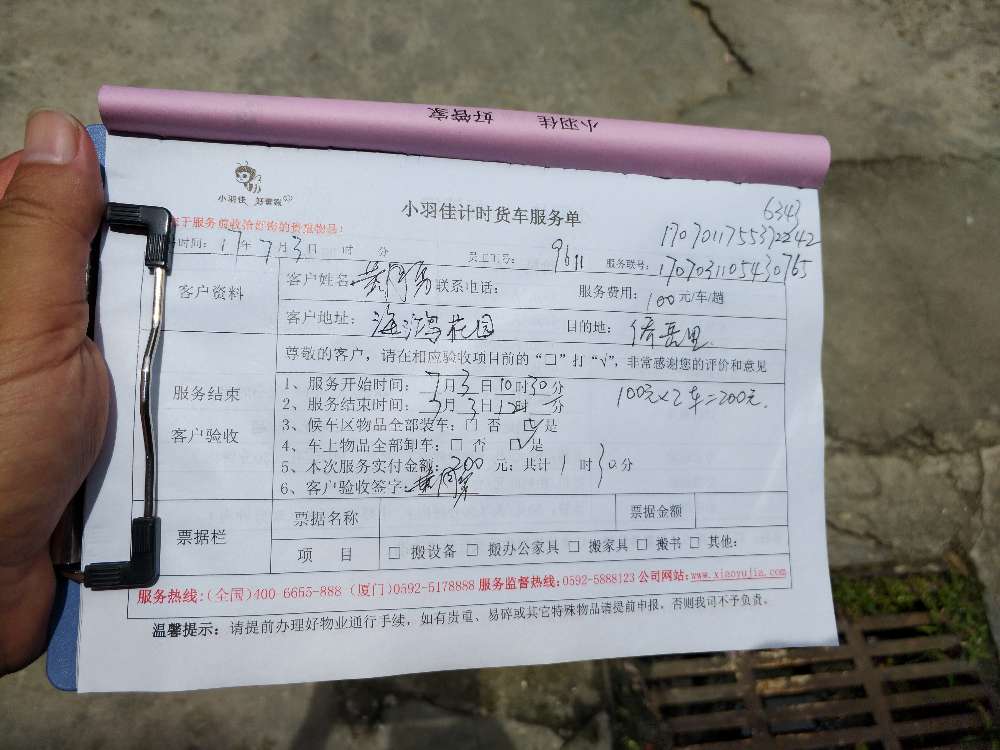 小羽佳 好管家
小羽佳 好管家
小羽佳计时货车服务单
6343
1707011755372242
时间：17年7月3日 时 分 员工工号：9611 服务联号：1707031105430765
客户资料
客户姓名： 联系电话： 服务费用：100元/车/趟
客户地址：海沧 花园 目的地：侨岳里
尊敬的客户，请在相应验收项目前的“口”打“√”，非常感谢您的评价和意见
服务结束
客户验收
1、服务开始时间：7月3日10时30分
100元×2车=200元.
2、服务结束时间：7月3日12时 分
3、候车区物品全部装车：□ 否 ☑是
4、车上物品全部卸车：□ 否 ☑是
5、本次服务实付金额：200 元；共计1时30分
6、客户验收签字：
票据栏
票据名称 票据金额
项 目 □ 搬设备 □ 搬办公家具 □ 搬家具 □ 搬书 □ 其他：
服务热线：(全国)400 6655-888 (厦门)0592-5178888 服务监督热线：0592-5888123 公司网站：www.xiaoyujia.com
温馨提示：请提前办理好物业通行手续，如有贵重、易碎或其它特殊物品请提前申报，否则我司不予负责。